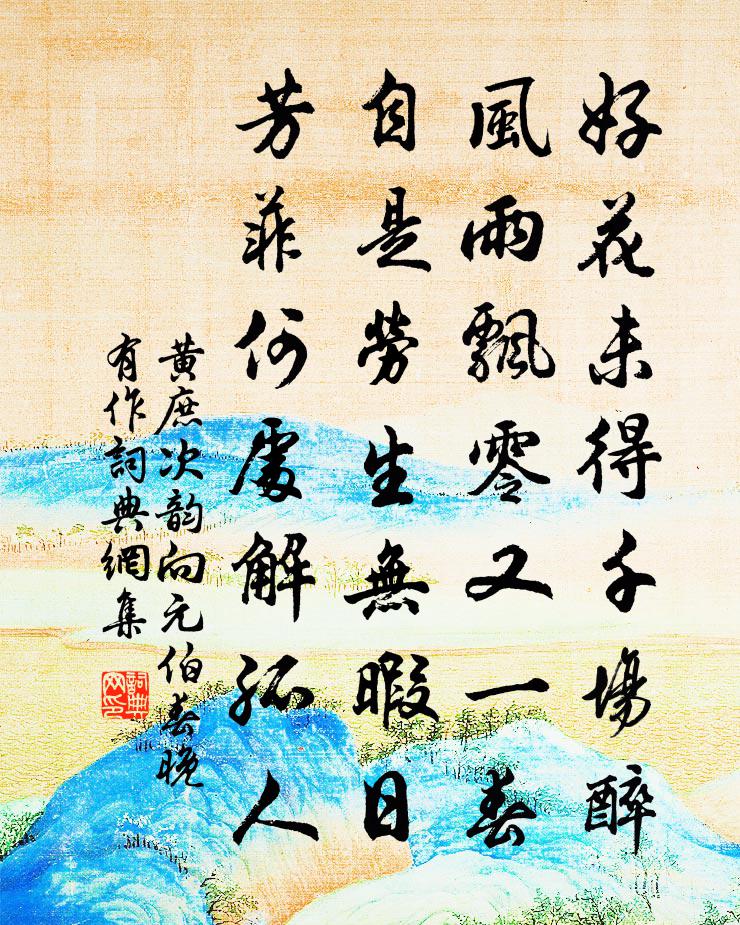 好花未得千場醉
風雨飄零又一春
自是勞生無暇日
芳菲何處解孤人
黃庶次韵向元伯春晚
有作詞典網集
詞典網印